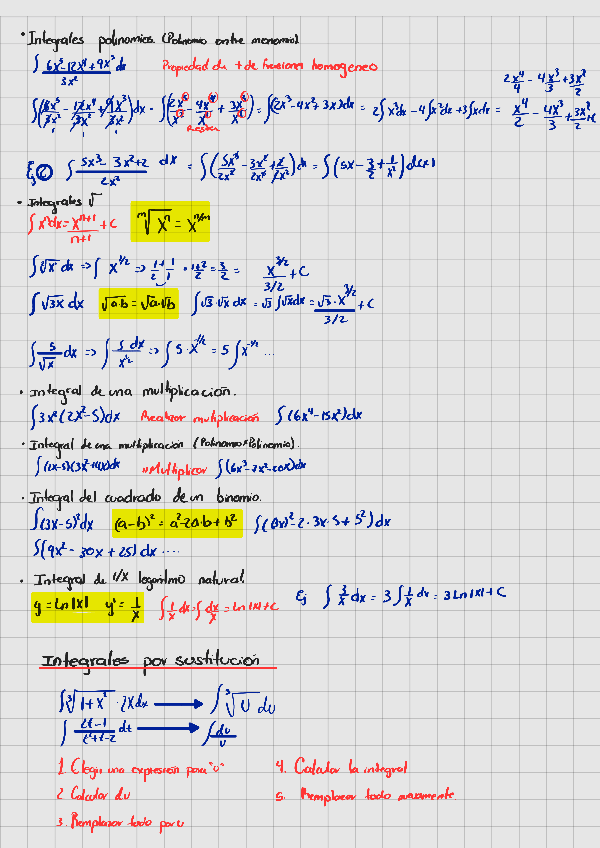 • Integrales polinomios. (Polinomio entre monomio)
∫ 6x⁵-12x⁴+9x³ / 3x² dx   Propiedad de + de fracciones homogeneo
∫(6x⁵/3x² - 12x⁴/3x² + 9x³/3x²)dx = ∫(2x⁵/x² - 4x⁴/x² + 3x³/x²) = ∫(2x³-4x²+3x)dx = 2∫x³dx-4∫x²dx+3∫xdx = x⁴/2 - 4x³/3 + 3x²/2 + C
2x⁴/4 - 4x³/3 + 3x²/2
Restar
Ej ② ∫ 5x³-3x²+2 / 2x² dx = ∫(5x³/2x² - 3x²/2x² + 2/2x²)dx = ∫(5x - 3/2 + 1/x²)dx
• Integrales √
∫xⁿdx = xⁿ⁺¹/n+1 + C   ᵐ√xⁿ = xⁿ/ᵐ
∫²√x dx => ∫ x^1/2 => 1/2 + 1/1 = 1+2/2 = 3/2 = x^3/2 / 3/2 + C
∫√3x dx   √a·b = √a·√b   ∫√3·√x dx = √3 ∫√x dx = √3·x^3/2 / 3/2 + C
∫ 5/√x dx => ∫ 5 dx/x^1/2 => ∫ 5·x^1/2 = 5∫x^-1/2 ...
• Integral de una multiplicación.
∫3x²(2x²-5)dx   Realizar multiplicación   ∫(6x⁴-15x²)dx
• Integral de una multiplicación (Polinomio×Polinomio).
∫(2x-5)(3x²+4x)dx   "Multiplicar   ∫(6x³-7x²-20x)dx
• Integral del cuadrado de un binomio.
∫(3x-5)²dx   (a-b)² = a²-2a·b+b²   ∫((3x)²-2·3x·5+5²)dx
∫(9x²-30x+25)dx ....
• Integral de 1/x logaritmo natural.
y = Ln|x|   y' = 1/x   ∫1/x dx = ∫dx/x = Ln|x|+C   Ej ∫ 3/x dx = 3∫1/x dx = 3Ln|x|+C
Integrales por sustitución
∫³√1+x² · 2xdx → ∫³√u du
∫ 2t-1 / t²+t-2 dt → ∫du/u
1. Elegir una expresión para "u"   4. Calcular la integral
2. Calcular du   5. Remplazar todo nuevamente.
3. Remplazar todo por u